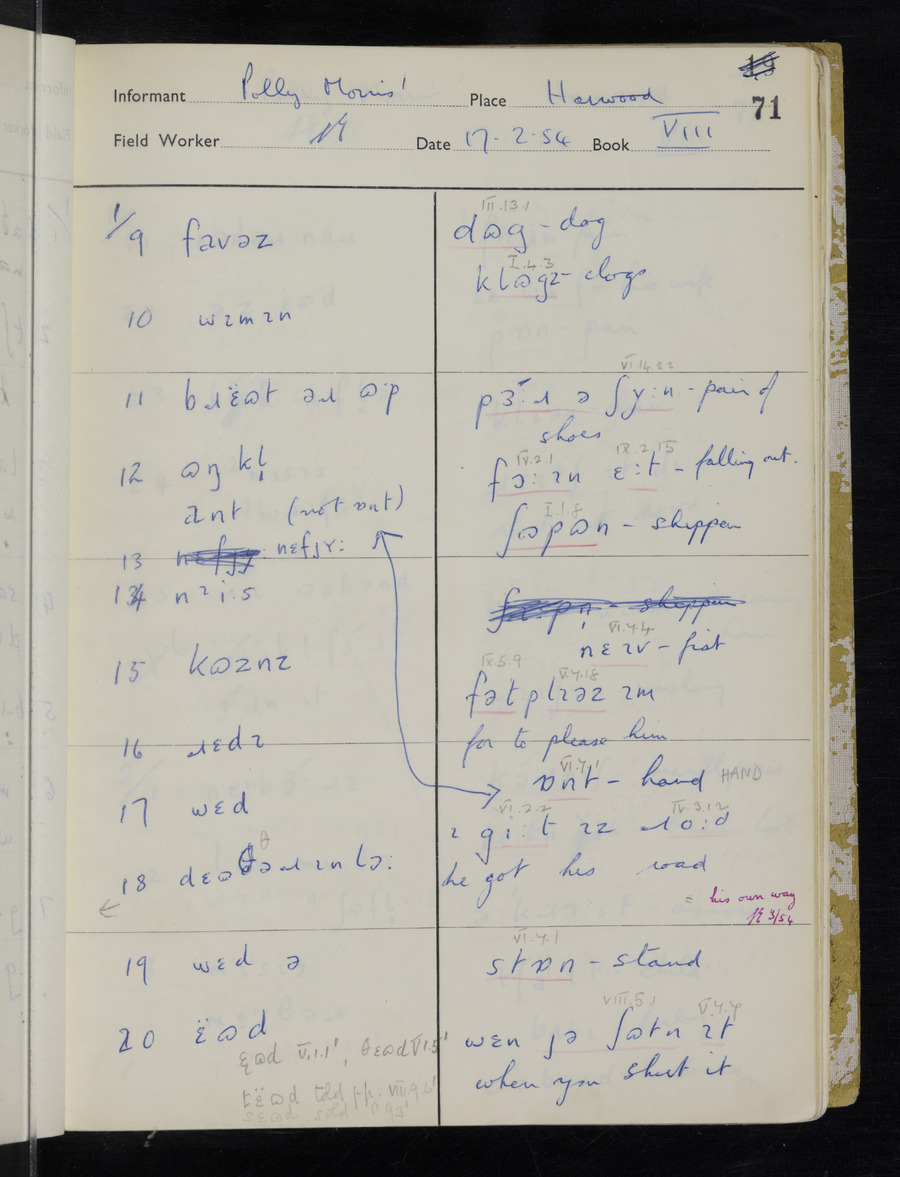 71
Informant Polly Morris' Place Harwood
Field Worker Date 17.2.54 Book VIII
1/9 favəz
10 wɪmɪn
11 bɹɛ̈ɷt əɹ ɷ·p
12 ɷŋkl̩
ant (not ɒnt)
13 nɛfjʏ:
14 nɪi:s
15 kɷzɪnz
16 ɹɛdɪ
17 wɛd
18 dɛɷθəɹ ɪn lɔ:
θ
19 wɛd ə
20 ɛ̈ɷd
ɛɷd V.1.1', θɛɷd VI.5'
tɛ̈ɷd told pp. VIII.9.6'
sɛɷd sold
III.13.1
dɷg - dog
I.4.3
klɷgz - clogs
VI.14.22
pɜ̈:ɹ ə ʃʏ:n - pair of
shoes
IV.2.1 IX.2.15
fɔ:ɪn ɛ:t - falling out.
I.1.8
ʃɷpɷn - shippen
shippen
VI.7.4
nɛɪv - fist
IX.5.9 V.7.18
fət plɪəz ɪm
for to please him
VI.7.1
ɒnt - hand HAND
VI.2.2 IV.3.12
ɪ gi:t ɪz ɹo:d
he got his road
= his own way
3/54
VI.7.1
stɒn - stand
VIII.5.1 V.7.7
wɛn jə ʃɷtn ɪt
when you shut it